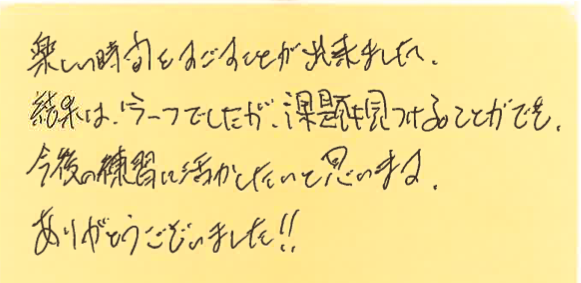 楽しい時間をすごすことが出来ました。
結果は、今一つでしたが、課題を見つけることができ、
今後の練習に活かしたいと思います。
ありがとうございました!!